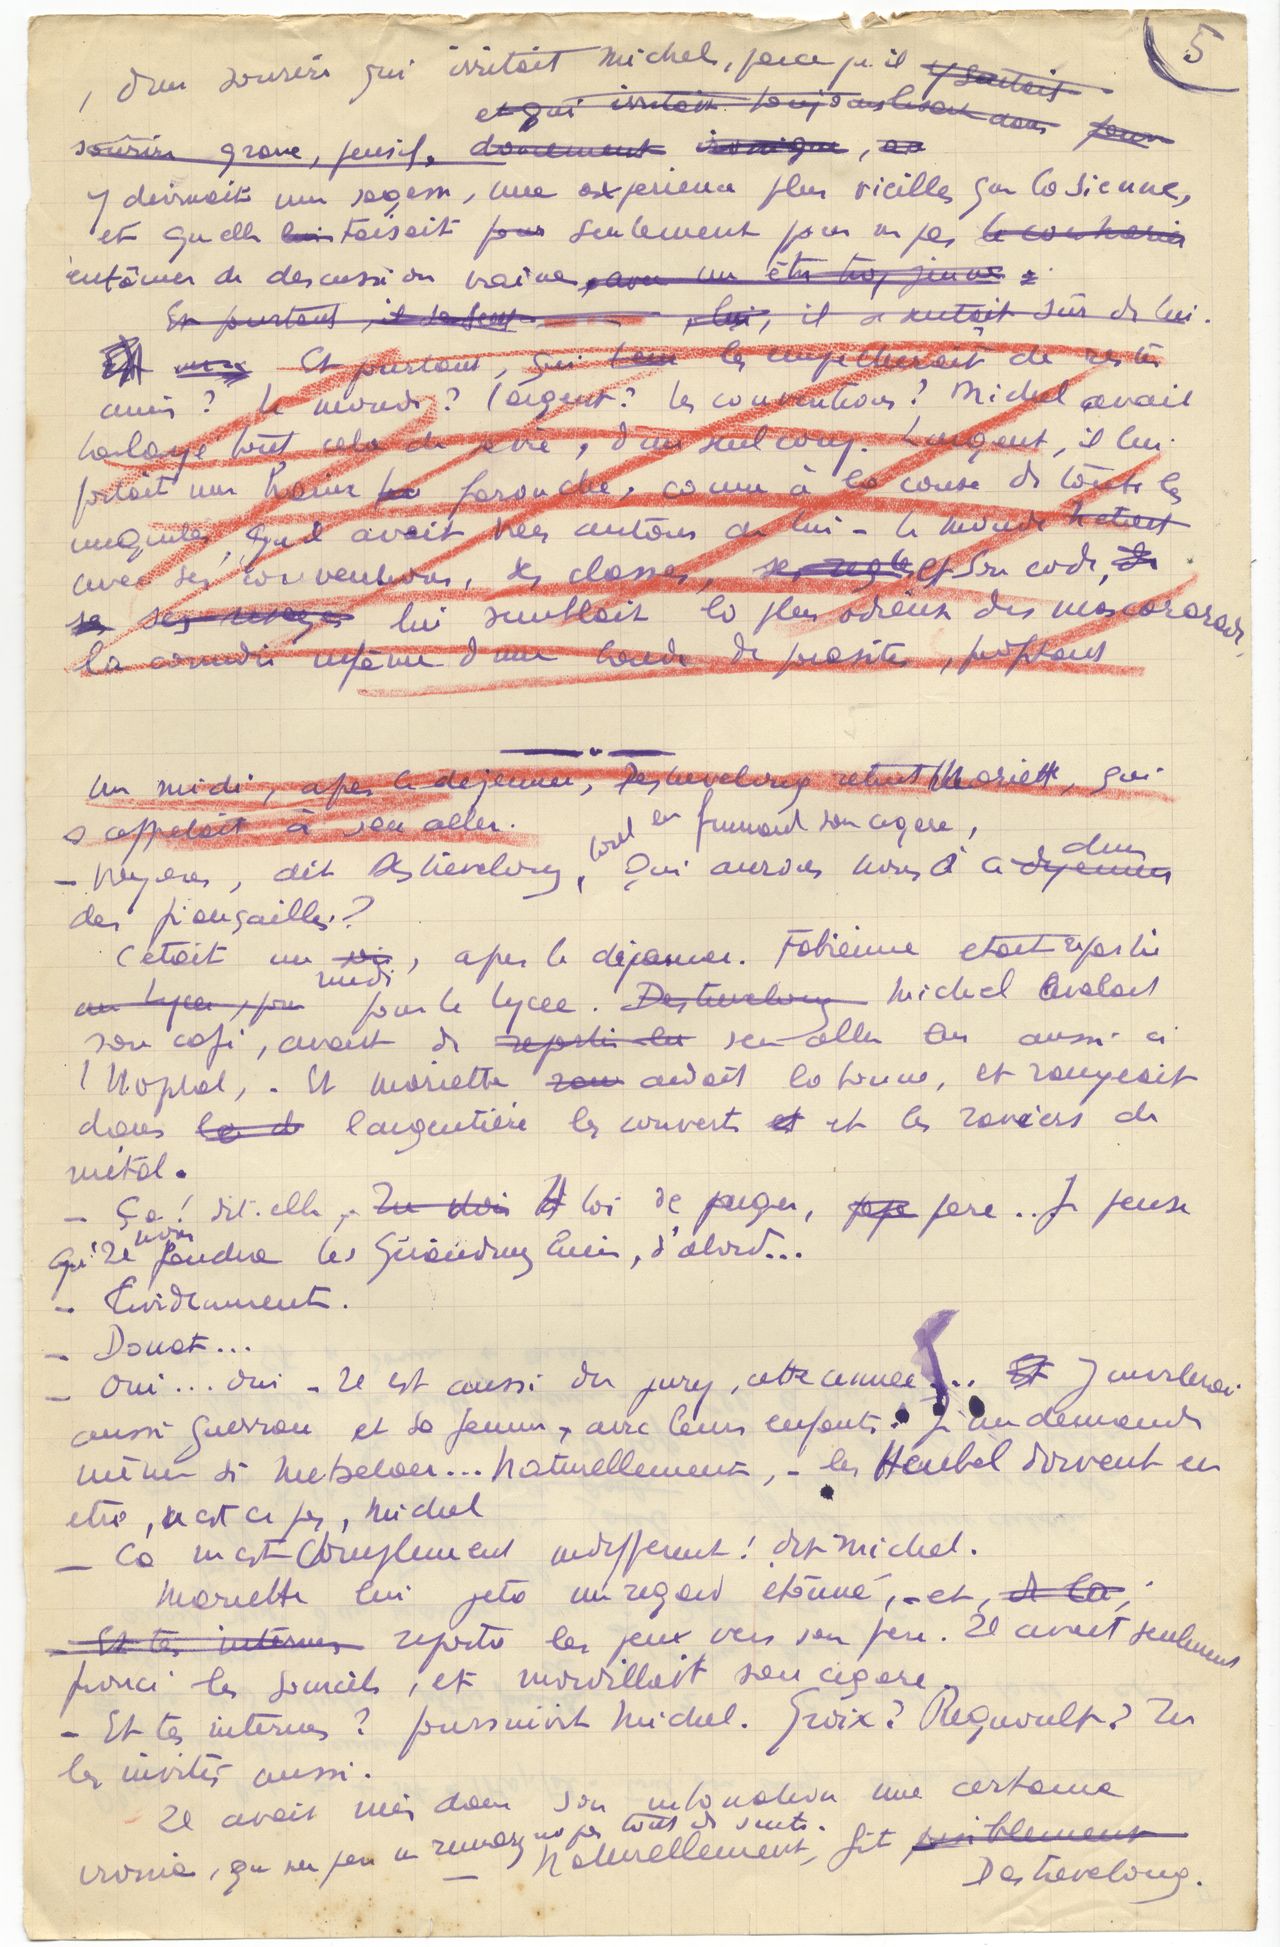 5
, d'un sourire qui irritait Michel, parce qu'il y sentait
et qui irritait toujours dans
sourire grave, pensif, doucement ironique,
y devinait une sagesse, une experience plus vieille que la sienne,
et qu'elle lui taisait pour seulement pour ne pas le contrarier
entâmer de discussion vaine, avec un être trop jeune.
Et pourtant, il se sent lui, il se sentait sûr de lui.
Et pourtant, qui les empêcherait de rester
amis? le monde? l'argent? les conventions? Michel avait
balayé tout cela de sa vie, d'un seul coup. L'argent, il lui
portait une haine farouche, comme à la cause de toutes les
qu'il avait vues autour de lui - le monde
avec ses conventions, ses classes, ses regles et son code,
lui semblait la plus odieuse des mascarades,
la comédie infâme d'une bande de parasites, profitant
Un midi, apres le dejeuner, Destrevelong retint Mariette, qui
s'appretait à s'en aller.
- Voyons, dit Destrevelong, tout en fumant son cigare,
qui aurons nous à ce dejeuner diner
des fiançailles?
C'était un midi, apres le déjeuner. Fabienne etait repartie
au lycee, pour pour le lycee. Destrevelong Michel avalait
son café, avant de repartir s'en aller lui aussi à
l'hopital, - Et Mariette aidait la bonne, et rangeait
dans l'argentière les couverts et et les raviers de
métal.
- Ça! dit-elle, Tu dois à toi de juger, pere.. Je pense
qu'il voudra les d'abord...
- Evidemment.
- Donat...
- Oui... oui - Il est aussi du jury, cette année... Et J'inviterai
aussi Guerran et sa femme, avec leurs enfants. Je me demande
même si ... Naturellement, - les Heubel doivent en
etre, n'est ce pas, Michel
- Ca m'est complement indifferent! dit Michel.
Mariette lui jeta un regard étonné, - et, de la,
- Et tes internes reporta les yeux vers son pere. Il avait seulement
froncé les sourcils, et mordillait son cigare.
- Et tes internes? poursuivit Michel. Groix? Regnoult? Tu
les invites aussi.
Il avait mis dans son intonation une certaine
ironie, que son pere ne remarqua pas tout de suite.
- Naturellement, fit paisiblement
Destrevelong.